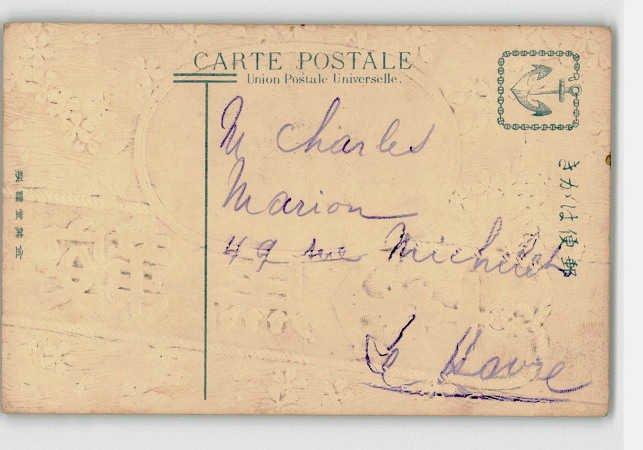 CARTE POSTALE
Union Postale Universelle.
きかは便郵
M Charles
Marion
49 rue Michelet
Le Havre